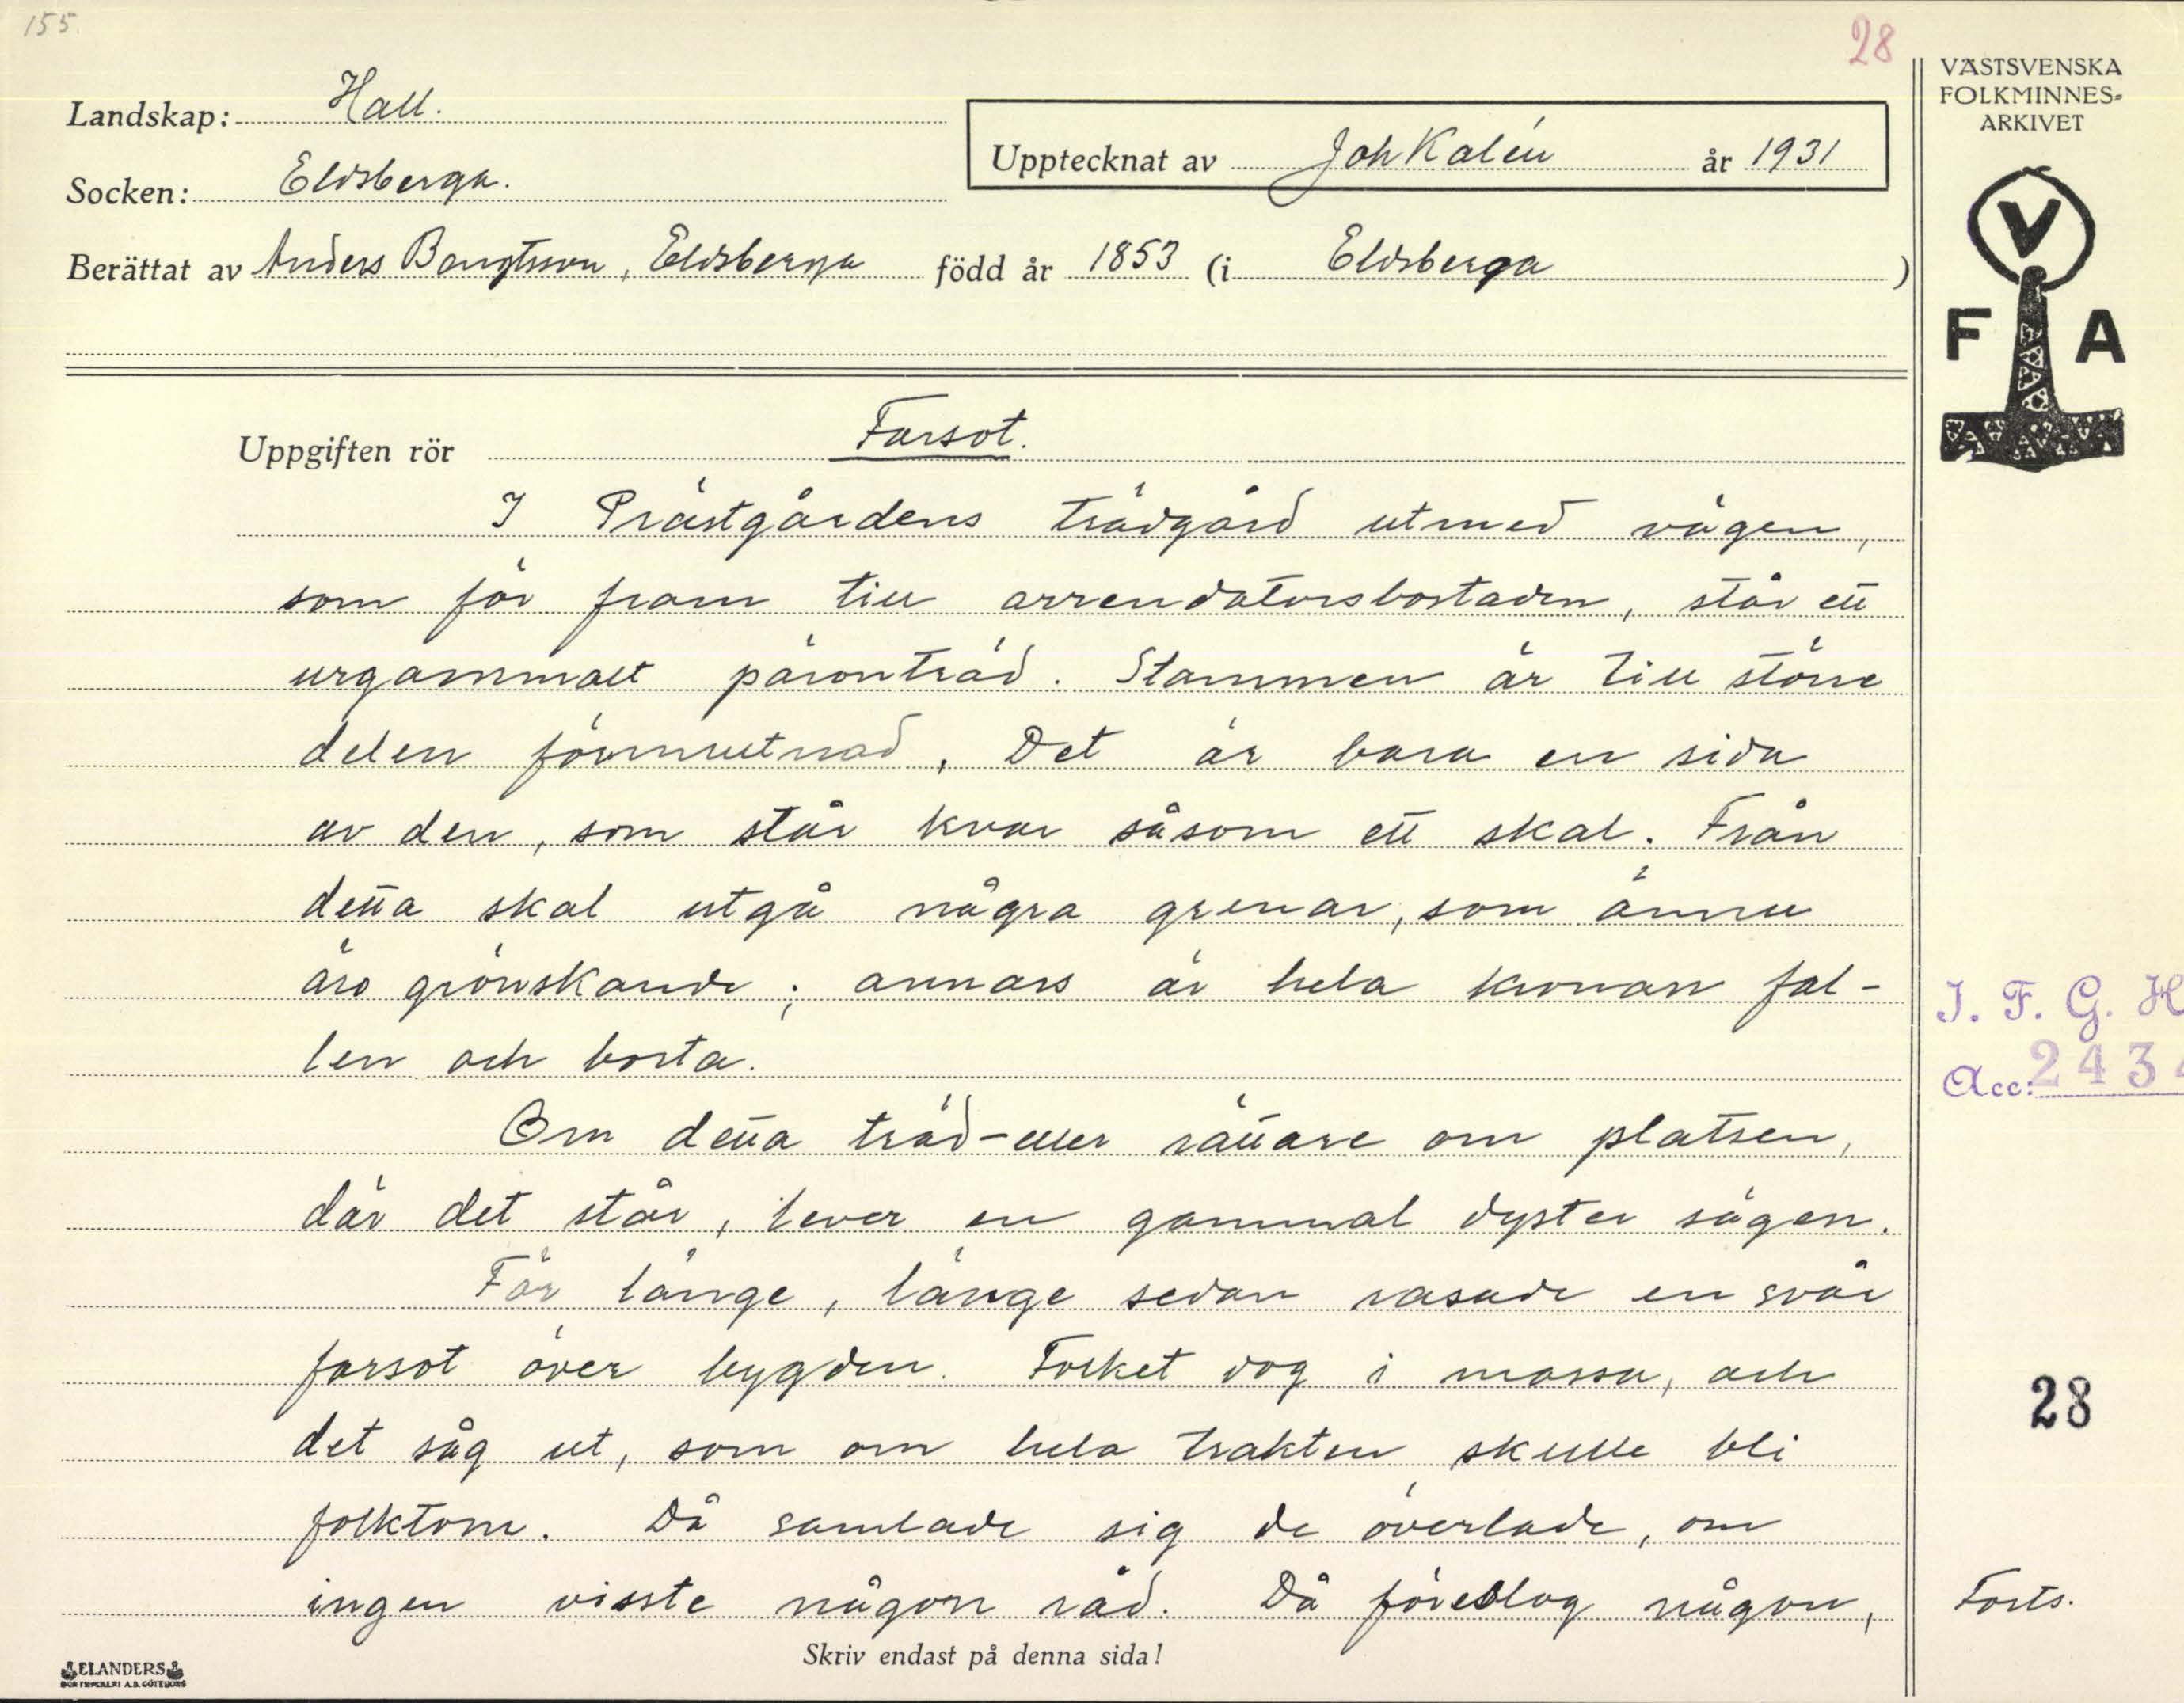 155.
28
VÄSTSVENSKA
FOLKMINNES-
ARKIVET
Landskap: Hall.
Upptecknat av Joh Kalén år 1931
Socken: Eldsberga.
Berättat av Anders Bengtsson, Eldsberga född år 1853 (i Eldsberga)
V
F A
Uppgiften rör Farsot.
I Prästgårdens trädgård utmed vägen,
som för fram till arrendatorsbostaden, står ett
urgammalt päronträd. Stammen är till större
delen förmultnad. Det är bara en sida
av den, som står kvar såsom ett skal. Från
detta skal utgå några grenar, som ännu
äro grönskande; annars är hela kronan fal-
len och borta.
Om detta träd - eller rättare om platsen,
där det står, lever en gammal dyster sägen.
För länge, länge sedan rasade en svår
farsot över bygden. Folket dog i massa, och
det såg ut, som om hela trakten skulle bli
folktom. Då samlade sig de överlade, om
ingen visste någon råd. Då föreslog någon,
I. F. G. H
Acc: 243
28
Forts.
Skriv endast på denna sida!
ELANDERS
BOKTRYCKERI A.B. GÖTEBORG